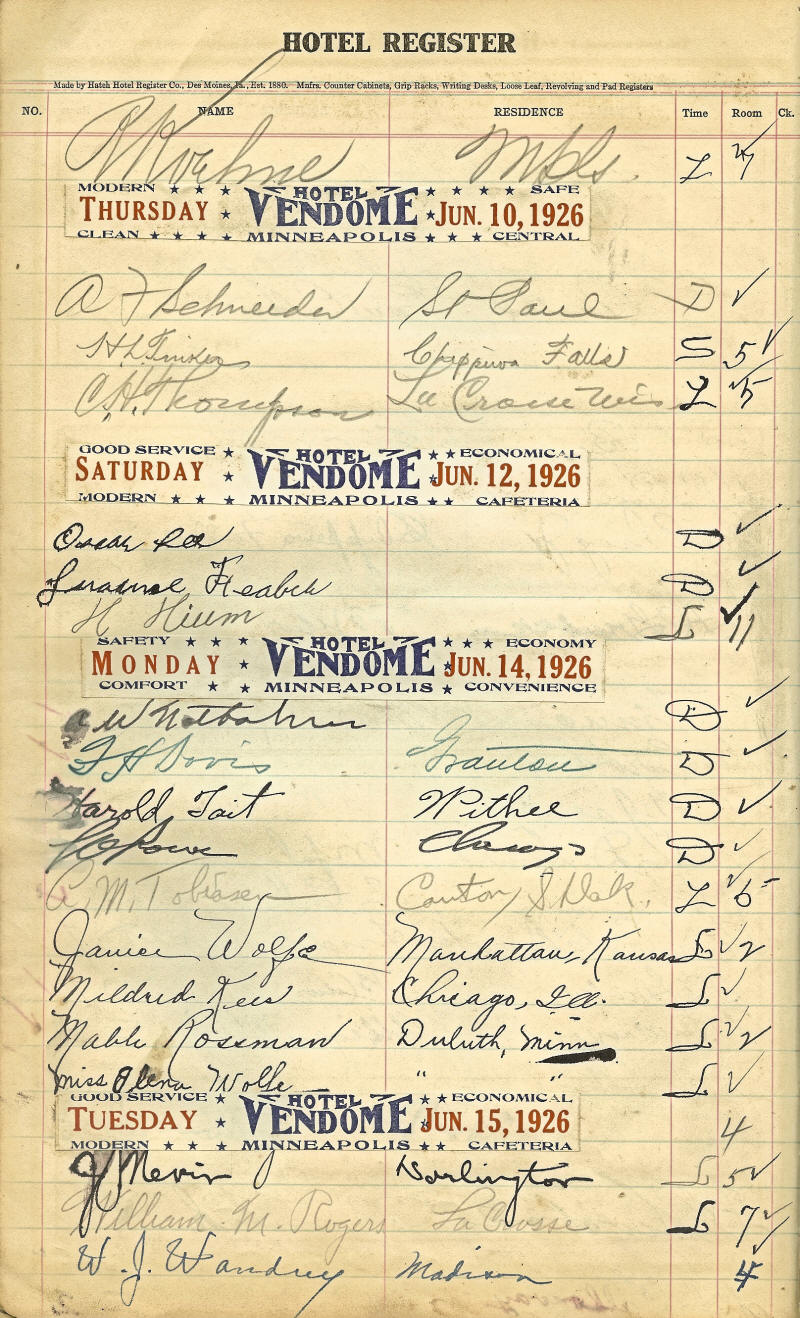 HOTEL REGISTER
Made by Hatch Hotel Register Co., Des Moines, Ia., Est. 1880. Mnfrs. Counter Cabinets, Grip Racks, Writing Desks, Loose Leaf, Revolving and Pad Registers
NO. NAME RESIDENCE Time Room Ck.
R Koehne Mpls. L
MODERN ★ ★ ★ HOTEL ★ ★ ★ ★ SAFE
THURSDAY ★ VENDOME ★ JUN. 10, 1926
CLEAN ★ ★ ★ ★ MINNEAPOLIS ★ ★ ★ ★ CENTRAL
A F Schneider St Paul D ✓
H L Chippewa Falls S 5 ✓
C. H. Thompson La Crosse Wis L 5
GOOD SERVICE ★ HOTEL ★ ★ ECONOMICAL
SATURDAY ★ VENDOME ★ JUN. 12, 1926
MODERN ★ ★ ★ MINNEAPOLIS ★ ★ CAFETERIA
Oscar D ✓
D ✓
H Hium L ✓ 11
SAFETY ★ ★ ★ HOTEL ★ ★ ★ ECONOMY
MONDAY ★ VENDOME ★ JUN. 14, 1926
COMFORT ★ ★ MINNEAPOLIS ★ CONVENIENCE
A W D ✓
F H Davis Granton D ✓
Harold Tait Withee D ✓
D ✓
C. M. Tobiasen Canton, S. Dak. L ✓ 6
Janice Wolfe Manhattan, Kansas L ✓ 2
Mildred Kees Chicago, Ill. L ✓
Mable Rossman Duluth, Minn L ✓ 2
Miss Olena Wolfe " " L ✓
GOOD SERVICE ★ HOTEL ★ ★ ECONOMICAL
TUESDAY ★ VENDOME ★ JUN. 15, 1926
4
MODERN ★ ★ ★ MINNEAPOLIS ★ ★ CAFETERIA
Mevin Darlington L 5 ✓
William M. Rogers La Crosse L 7 ✓
W. J. Wandrey Madison 4 ✓